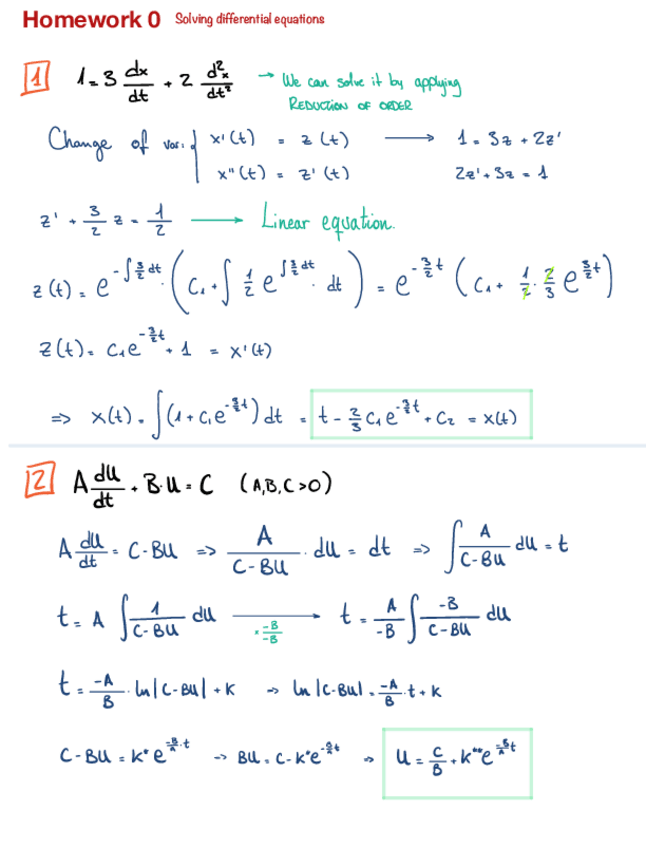 Homework 0 Solving differential equations
1 1 = 3 dx/dt + 2 d²x/dt² → We can solve it by applying
REDUCTION OF ORDER
Change of var: { x'(t) = z(t) → 1 = 3z + 2z'
x''(t) = z'(t) 2z' + 3z = 1
z' + 3/2 z = 1/2 → Linear equation.
z(t) = e^(-∫3/2 dt) (C₁ + ∫ 1/2 e^(∫3/2 dt) · dt) = e^(-3/2 t) (C₁ + 1/2 · 2/3 e^(3/2 t))
z(t) = C₁e^(-3/2 t) + 1 = x'(t)
⇒ x(t) = ∫(1 + C₁e^(-3/2 t)) dt = t - 2/3 C₁e^(-3/2 t) + C₂ = x(t)
2 A du/dt + B·U = C (A,B,C>0)
A du/dt = C - BU ⇒ A/(C - BU) · du = dt ⇒ ∫ A/(C - BU) du = t
t = A ∫ 1/(C - BU) du → · -B/-B t = A/-B ∫ -B/(C - BU) du
t = -A/B · ln|C - BU| + K → ln|C - BU| = -A/B t + K
C - BU = K* e^(-B/A · t) → BU = C - K*e^(-B/A t) → U = C/B + K**e^(-B/A t)